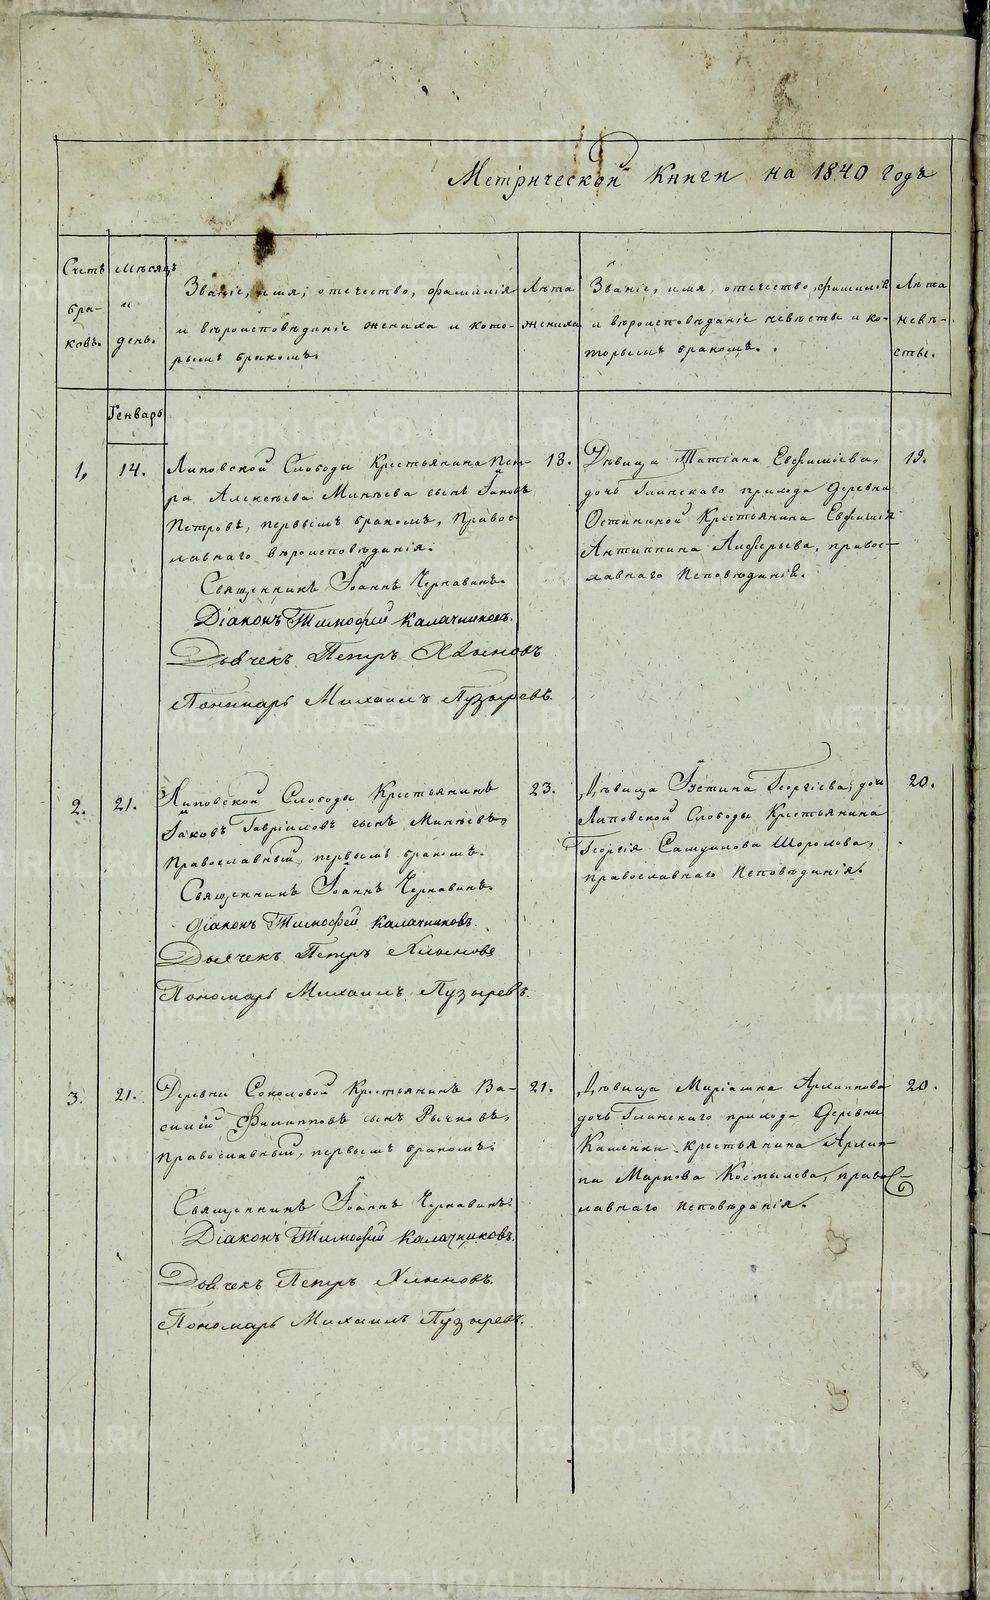 Метрической Книги на 1840 годъ
Счетъ браковъ.
Мѣсяцъ и день.
Званіе, имя, отечество, фамилія
и вѣроисповѣданіе жениха и кото-
рымъ бракомъ.
Лѣта жениха
Званіе, имя, отечество, фамилія
и вѣроисповѣданіе невѣсты и ко-
торымъ бракомъ.
Лѣта невѣ-
сты.
Генварь
1, 14.
Липовской Слободы Крестьянина Пет-
ра Алексѣева Минѣева сынъ Іаковъ
Петровъ, первымъ бракомъ, Правос-
лавнаго вѣроисповѣданія.
18.
Дѣвица Татіана Евфиміева,
дочь Глинскаго прихода деревни
Останиной Крестьянина Евфимія
Антиппина Алферьева, правос-
лавнаго Исповѣданія.
19.
Священникъ Іоаннъ Чернавинъ.
Діаконъ Тимофей Калачниковъ.
Дьячекъ Петръ Хлыновъ
Пономарь Михаилъ Пузыревъ.
2. 21.
Липовской Слободы Крестьянинъ
Іаковъ Гавріиловъ сынъ Минѣевъ,
Православный, первымъ бракомъ.
23.
Дѣвица Іустина Георгіева, дочь
Липовской Слободы Крестьянина
Георгія Самуилова Шорохова,
православнаго Исповѣданія.
20.
Священникъ Іоаннъ Чернавинъ.
Діаконъ Тимофей Калачниковъ.
Дьячекъ Петръ Хлыновъ
Пономарь Михаилъ Пузыревъ.
3. 21.
Деревни Соколовой Крестьянинъ Ва-
силій Филипповъ сынъ Рычковъ,
Православный, первымъ бракомъ.
21.
Дѣвица Маріамна Архиппова
дочь Глинскаго прихода Деревни
Каменки крестьянина Архип-
па Маркова Костылева, право-
славнаго Исповѣданія.
20.
Священникъ Іоаннъ Чернавинъ.
Діаконъ Тимофей Калачниковъ.
Дьячекъ Петръ Хлыновъ.
Пономарь Михаилъ Пузыревъ.
METRIKI.GASO-URAL.RU